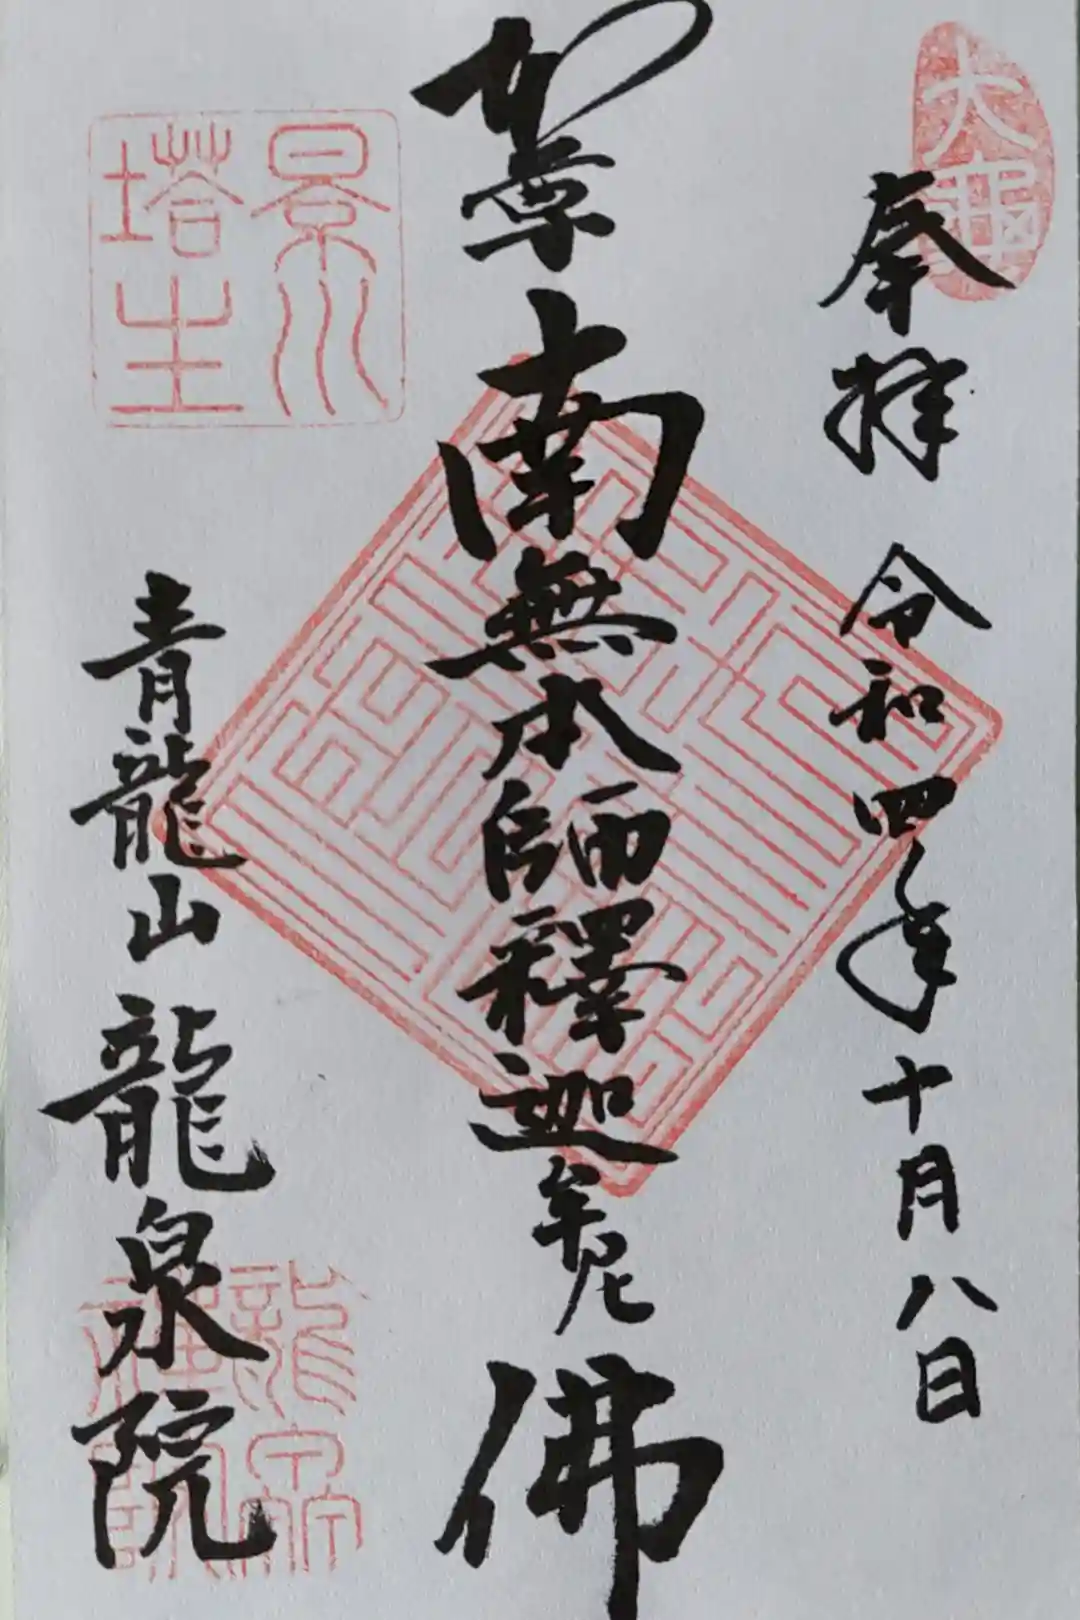 奉拝 令和四年十月八日
南無本師釋迦牟尼佛
景川
塔主
青龍山 龍泉院